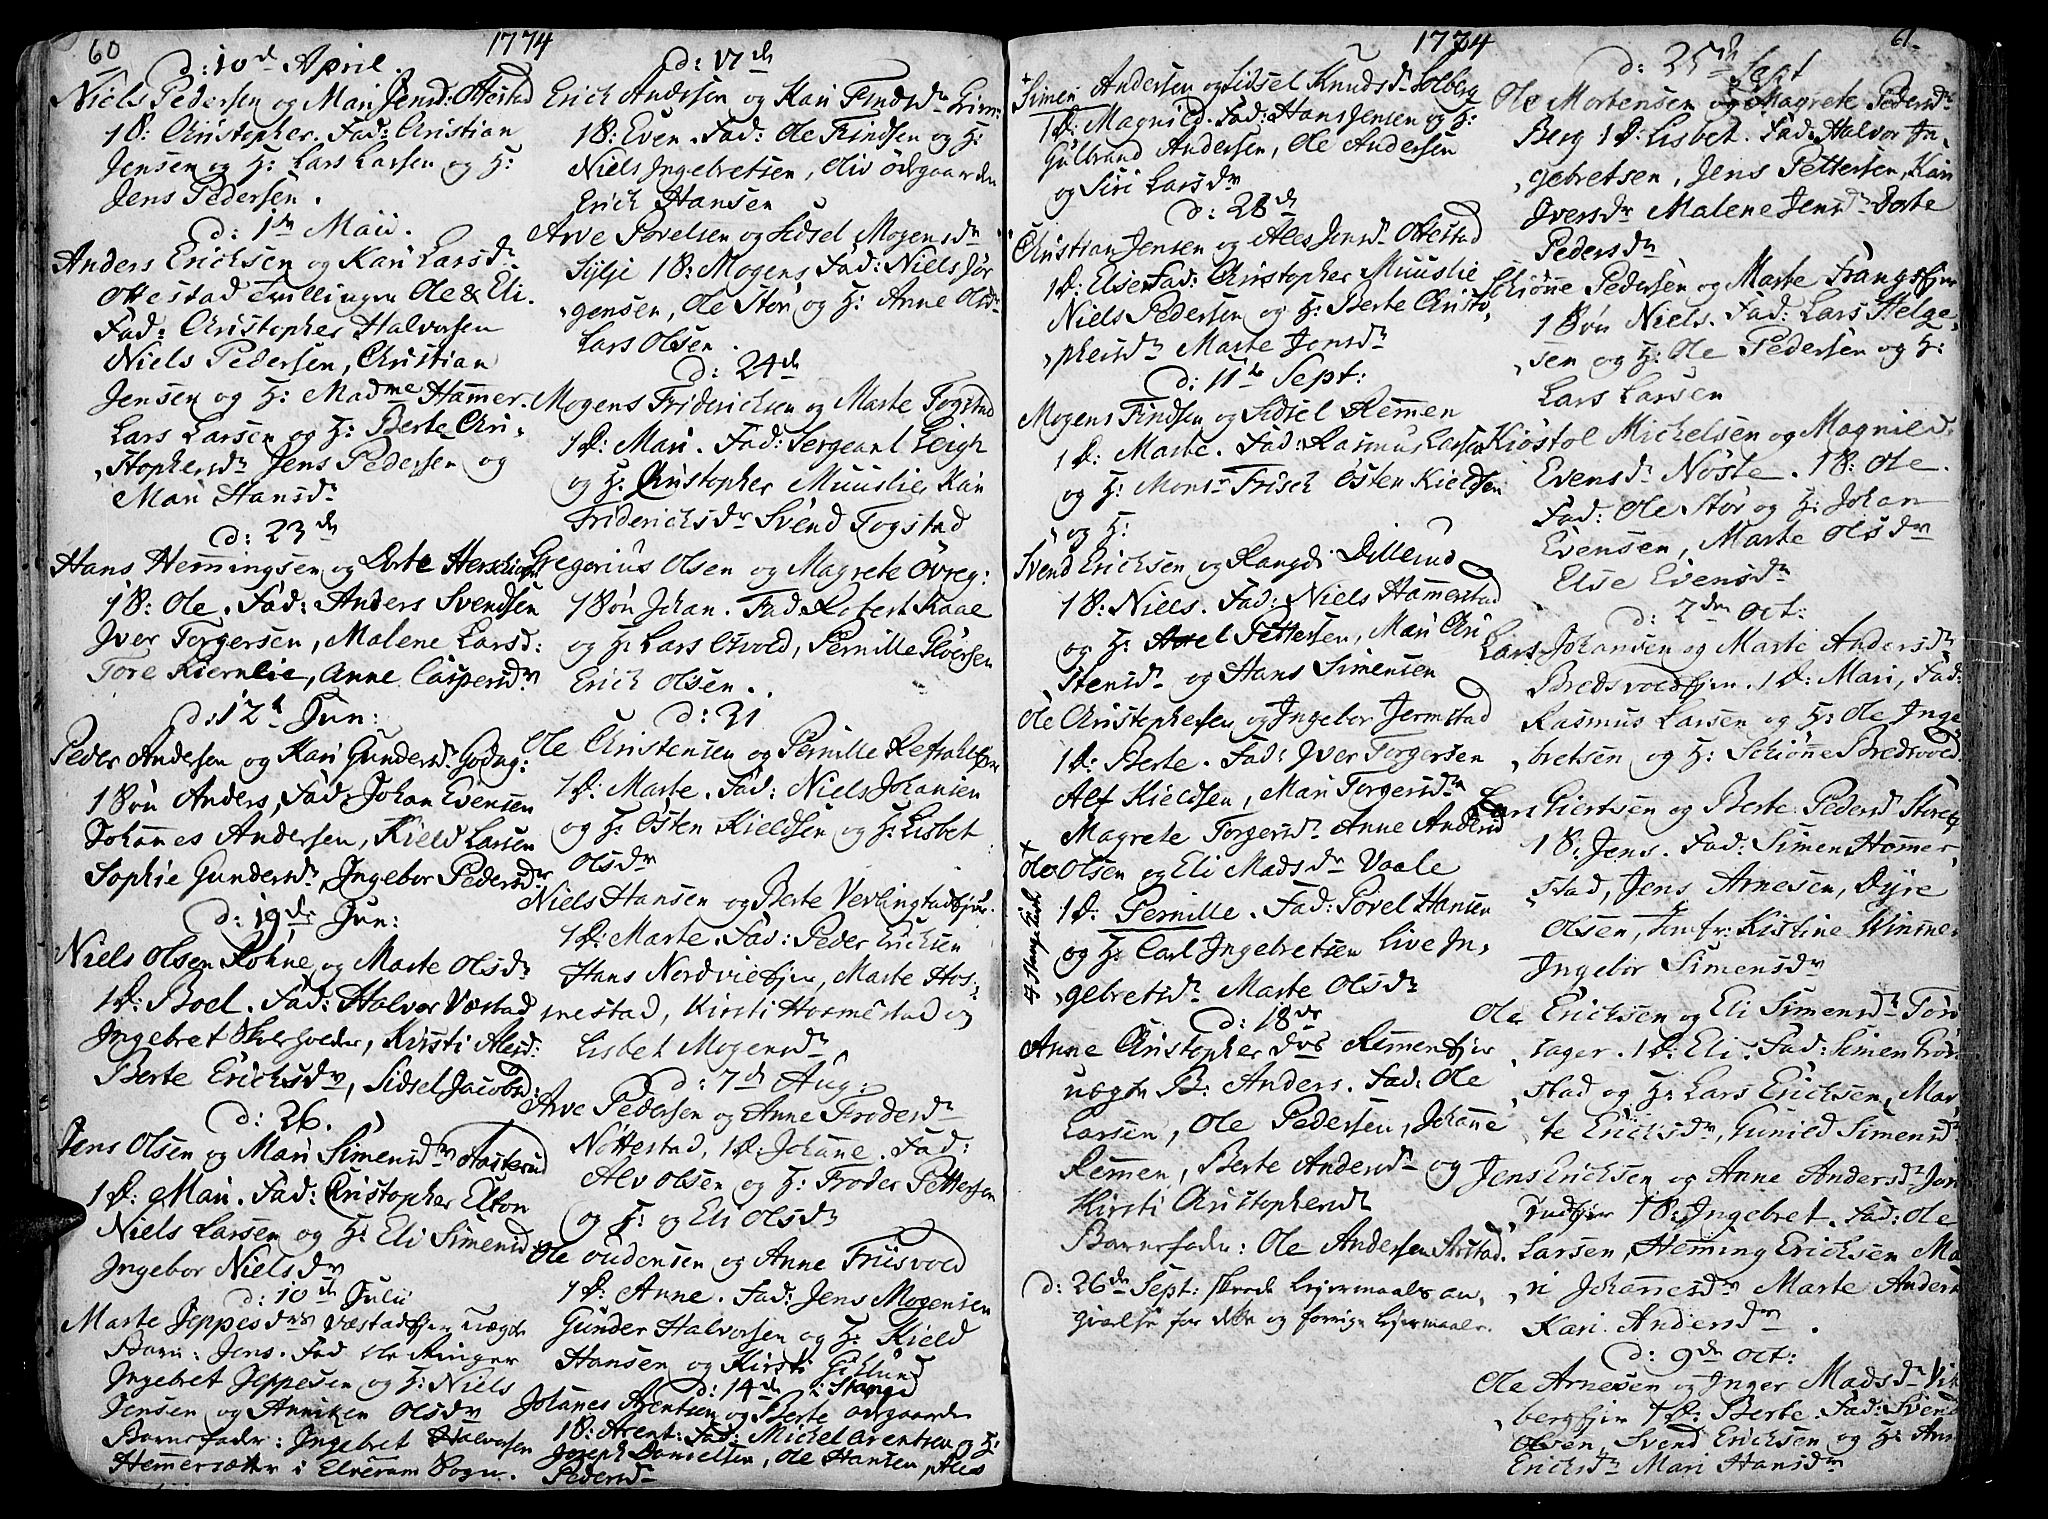 60
1774
d: 10d April.
Niels Pedersen og Mari Jensd: Ottestad
1 S: Christopher. Fad: Christian
Jensen og H: Lars Larsen og H:
Jens Pedersen.
d: 1de Maii.
Anders Ericksen og Kari Larsdr
Ottestad Tvillinger Ole & Eli.
Fad: Christopher Halvorsen
Niels Pedersen, Christian
Jensen og H: Madme Hammer.
Lars Larsen og H: Berte Chri,
,stophersdr Jens Pedersen og
Mari Hansdr
d: 23de
Hans Hemmingsen og Dorte
1 S: Ole. Fad: Anders Svendsen
Iver Torgersen, Malene Larsd:
Tore Kiernlie, Anne Caspersdr
d: 12t Jun:
Peder Andersen og Kari Gundersdr Godag:
1 Søn Anders, Fad: Johan Evensen
Johannes Andersen, Kield Larsen
Sophie Gundersdr, Ingebor Pedersdr
d: 19de Jun:
Niels Olsen Røhne og Marte Olsdr
1 D: Boel. Fad: Halvor Væstad
Ingebret, Kirsti Alesd:
Berte Ericksdr, Sidsel Jacobsd:
d: 26.
Jens Olsen og Mari Simensdr Aasterud
1 D: Mari. Fad: Christopher Elton
Niels Larsen og H: Eli Simensd:
Ingebor Nielsdr
d: 10de Julii
Marte Jeppesdrs Væstadejer uægte
Barn: Jens. Fad Ole Ringer
Ingebret Jeppesen og H: Niels
Jensen og Anniken Olsdr
Barnefader: Ingebret Halvorsen
Hemmersætter i Elverum Sogn.
d: 17de
Erich Andersen og Kari Findsdr
1 S: Even. Fad: Ole Findsen og H:
Niels Ingebretsen, Oliv Ødegaarden
Erich Hansen
Arve Povelsen og Sidsel Mogensdr
1 S: Mogens Fad: Niels Jør
gensen, Ole Stør og H: Anne Olsdr
Lars Olsen.
d: 24de
Mogens Fridericksen og Marte Togstad
1 D: Mari. Fad: Sergeant Leigh
og H: Christopher Muuslie, Kari
Fridericksdr Svend Togstad
Gregorius Olsen og Magrete Øvreg:
1 Søn Johan. Fad: Robert Kaae
og H: Lars Osvold, Pernille
Erich Olsen.
d: 31
Ole Christensen og Pernille
1 D: Marte. Fad: Niels Johansen
og H: Østen Kieldsen og H: Lisbet
Olsdr
Niels Hansen og Berte
1 D: Marte. Fad: Peder Ericksen
Hans, Marte Hom,
,mestad, Kirsti Hommestad og
Lisbet Mogensdr
d: 7de Aug:
Arve Pedersen og Anne Frodersdr
Nøttestad, 1 D: Johanne. Fad:
Alv Olsen og H: Froder Pettersen
og H: og Eli Olsdr
Ole Oudensen og Anne Friisvold
1 D: Anne. Fad: Jens Mogensen
Gunder Halvorsen og H: Kield
Hansen og Kirsti
d: 14de i Stange
Johanes Arentsen og Berte Ødegaarden
1 S: Arent: Fad: Michel Arentsen og H:
Joseph Danielsen, Ole Hansen, Ales
Pedersdr
1774
61.
Simen Andersen og Sidsel Knudsdr Solberg
1 D: Magnild. Fad: Hans Jensen og H:
Gulbrand Andersen, Ole Andersen
og Siri Larsdr
d: 28de
Christian Jensen og Ales Jensdr Ottestad
1 D: Else Fad: Christopher Muuslie
Niels Pedersen og H: Berte Christo,
,phersdr Marte Jensdr
d: 11te Sept:
Mogens Findsen og Sidsel Remmen
1 D: Marte. Fad: Rasmus Larsen
og H: Monsr Frisch Østen Kieldsen
og H:
Svend Ericksen og Rangdi Dillerud
1 S: Niels. Fad: Niels Hammerstad
og H: Pettersen, Mari Chri
stensdr og Hans Simensen
Ole Christophersen og Ingebor Jermstad
1 D: Berte. Fad: Iver Torgersen
Alf Kieldsen, Mari Torgersdr
Magrete Torgersdr Anne
Ole Olsen og Eli Madsdr Vaale
1 D: Pernille. Fad: Povel Hansen
og H: Carl Ingebretsen Live In,
,gebretsdr Marte Olsdr
i Stange Kirke
d: 18de
Anne Christopherdrs Remmenejer
uægte B: Anders. Fad: Ole
Larsen, Ole Pedersen, Johanne
Remmen, Berte Andersdr og
Kirsti Christophersdr
Barnefader: Ole Andersen
d: 26de Sept: skeede Leiermaals an,
givelse for dette og forrige Leiermaal.
d: 25de Sept
Ole Mortensen og Magrete Pedersdr
Berg 1 D: Lisbet. Fad: Halvor In,
,gebretsen, Jens Pettersen, Kari
Iversdr Malene Jensdr Dorte
Pedersdr
Schiønne Pedersen og Marte
1 Søn Niels. Fad: Lars Helge,
,sen og H: Ole Pedersen og H:
Lars Larsen
Kiøstol Michelsen og Magnild
Evensdr Nøste. 1 S: Ole.
Fad: Ole Stør og H: Johan
Evensen, Marte Olsdr
Else Evensdr
d: 2den Oct:
Lars Johansen og Marte Andersdr
Bredsvoldejer. 1 D: Mari, Fad:
Rasmus Larsen og H: Ole Inge,
,bretsen og H: Schiønne Bredsvold.
Lars Giertsen og Berte Pedersd
1 S: Jens. Fad: Simen Hommer,
,stad, Jens Arnesen, Dyre
Olsen, Jomfr: Kistine Wimme
Ingebor Simensdr
Ole Ericksen og Eli Simensdr
1 D: Eli. Fad: Simen
stad og H: Lars Ericksen, Mar,
,te Ericksdr, Gunild Simensdr
Jens Ericksen og Anne Andersdr
1 S: Ingebret. Fad: Ole
Larsen, Hemming Ericksen Ma
,ri Johannesdr Marte Andersd
Kari Andersdr.
d: 9de Oct:
Ole Arnesen og Inger Madsdr Vik
bergejer 1 D: Berte. Fad: Svend
Olsen, Svend Ericksen og H:
Ericksdr Mari Hansdr